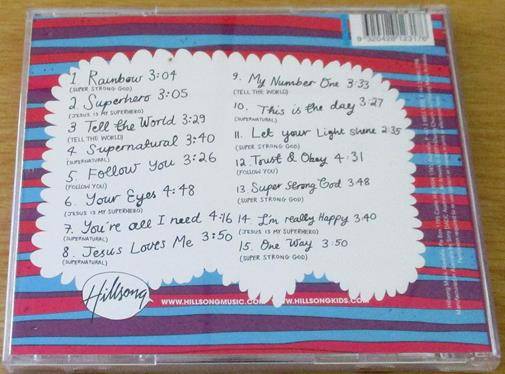 9 320428 123176
1. Rainbow 3:04
(SUPER STRONG GOD)
2 Superhero 3:05
(JESUS IS MY SUPERHERO)
3 Tell the World 3:29
(TELL THE WORLD)
4 Supernatural 3:40
(SUPERNATURAL)
5. Follow You 3:26
(FOLLOW YOU)
6. Your Eyes 4:48
(JESUS IS MY SUPERHERO)
7. You're all I need 4:16
(SUPERNATURAL)
8. Jesus Loves Me 3:50
(SUPERNATURAL)
9. My Number One 3:33
(TELL THE WORLD)
10. This is the day 3:27
(SUPERNATURAL)
11. Let your Light shine 2:35
(SUPER STRONG GOD)
12. Trust & Obey 4:31
(FOLLOW YOU)
13. Super Strong God 3:48
(SUPER STRONG GOD)
14 I'm really Happy 3:40
(JESUS IS MY SUPERHERO)
15. One Way 3:50
(SUPER STRONG GOD)
Hillsong
WWW.HILLSONGMUSIC.COM
WWW.HILLSONGKIDS.COM